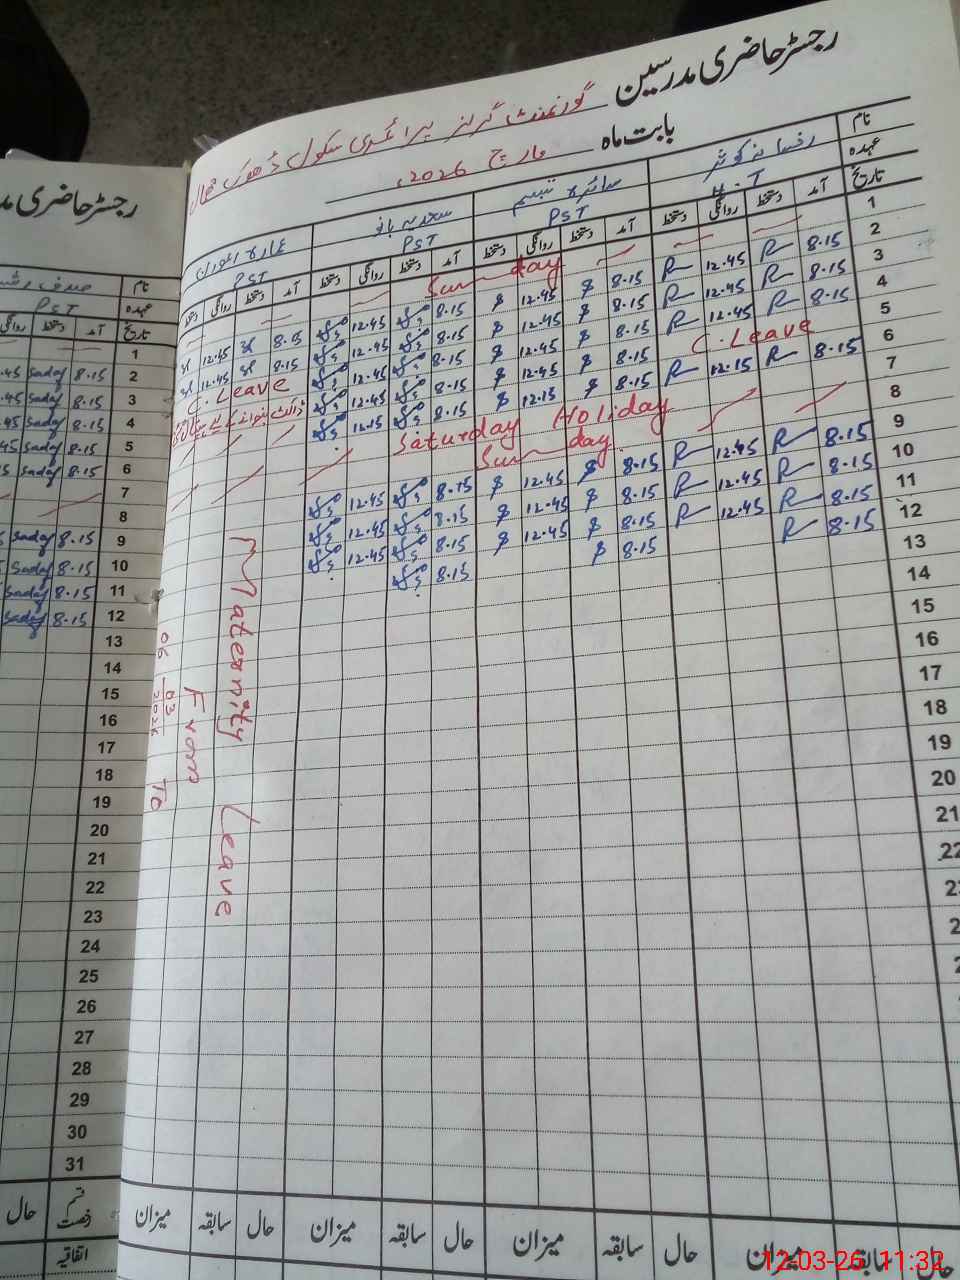 رجسٹر حاضری مدرسین گورنمنٹ گرلز پرائمری سکول ڈھوک
بابت ماہ مارچ 2026
نام رخسانہ کوثر سائرہ تبسم سعدیہ بانو
عہدہ H.T PST PST PST
تاریخ آمد دستخط روانگی دستخط آمد دستخط روانگی دستخط آمد دستخط روانگی دستخط آمد دستخط روانگی دستخط
1 Sunday
2 8.15 R 12.45 R 8.15 12.45 8.15 12.45 8.15 12.45
3 8.15 R 12.45 R 8.15 12.45 8.15 12.45 8.15 12.45
4 8.15 R 12.45 R 8.15 12.45 8.15 12.45 C. Leave
5 C. Leave 8.15 12.45 8.15 12.45
6 8.15 R 12.15 R 8.15 12.15 8.15 12.15
7 Saturday Holiday
8 Sunday
9 8.15 R 12.45 R 8.15 12.45 8.15 12.45
10 8.15 R 12.45 R 8.15 12.45 8.15 12.45
11 8.15 R 12.45 R 8.15 12.45 8.15 12.45
12 8.15 R 8.15 8.15
13
14
15
16
17
18
19
20
21
22
Maternity Leave
From 06 03 2026 To
میزان سابقہ حال میزان سابقہ حال میزان سابقہ حال میزان سابقہ حال
رجسٹر حاضری
نام صدف
عہدہ PST
تاریخ آمد دستخط
1
2 8.15 Sadaf
3 8.15 Sadaf
4 8.15 Sadaf
5 8.15 Sadaf
6 8.15 Sadaf
7
8
9 8.15 Sadaf
10 8.15 Sadaf
11 8.15 Sadaf
12 8.15 Sadaf
13
14
15
16
17
18
19
20
21
22
23
24
25
26
27
28
29
30
31
قسم رخصت حال
اتفاقیہ
12-03-26 11:32